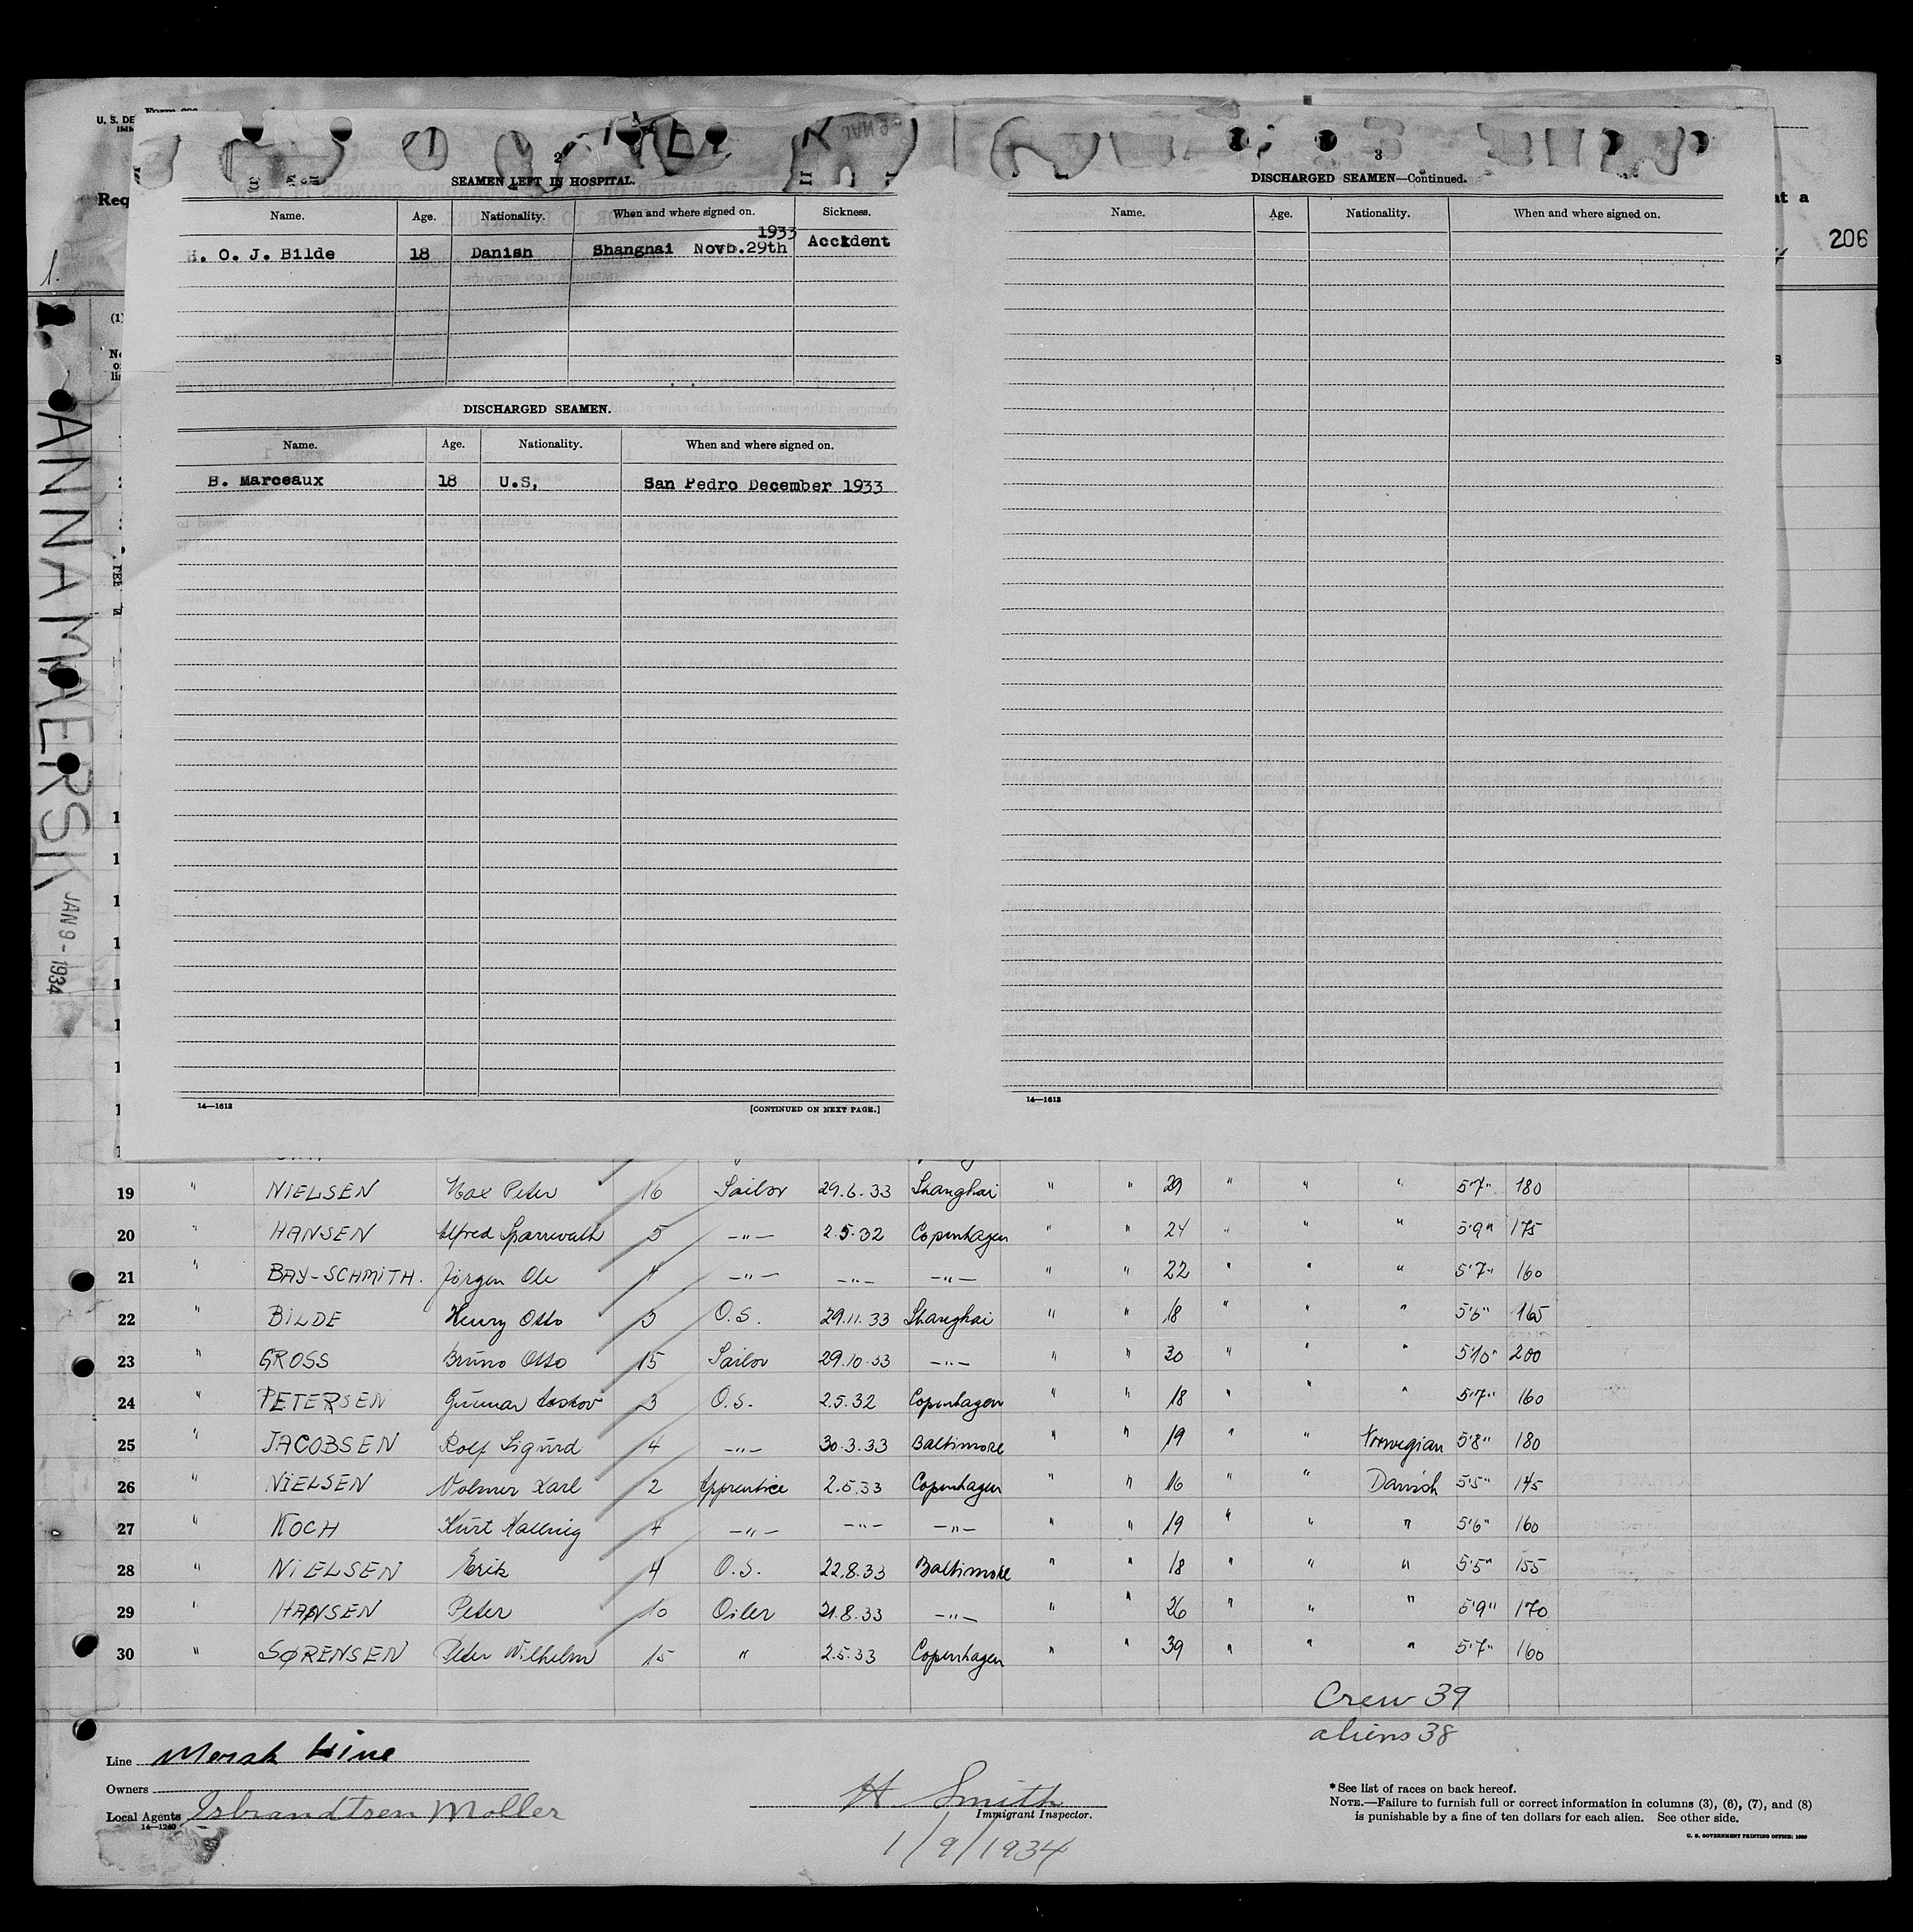 U. S. DE
IMM
Req
at a
206
1.
(1)
ANNA MAERSK
JAN 9 - 1934
2
SEAMEN LEFT IN HOSPITAL.
Name. Age. Nationality. When and where signed on. Sickness.
1933
H. O. J. Bilde 18 Danish Shanghai Novb.29th Accident
DISCHARGED SEAMEN.
Name. Age. Nationality. When and where signed on.
B. Marceaux 18 U.S, San Pedro December 1933
14—1613 [CONTINUED ON NEXT PAGE.]
3
DISCHARGED SEAMEN—Continued.
Name. Age. Nationality. When and where signed on.
14—1613
19 " NIELSEN Max Peter 16 Sailor 29.6.33 Shanghai " " 29 " " " 5'7" 180
20 " HANSEN Alfred Sparrevath 5 —"— 2.5.32 Copenhagen " 24 " " " 5'9" 175
21 " BAY-SCHMITH. Jörgen Ole 4 —"— —"— —"— " " 22 " " " 5'7" 160
22 " BILDE Henry Otto 3 O.S. 29.11.33 Shanghai " " 18 " " " 5'6" 165
23 " GROSS Bruno Otto 15 Sailor 29.10.33 —"— " " 30 " " " 5'10" 200
24 " PETERSEN Gunnar 3 O.S. 2.5.32 Copenhagen " " 18 " " " 5'7" 160
25 " JACOBSEN Rolf Sigurd 4 —"— 30.3.33 Baltimore " " 19 " " Norwegian 5'8" 180
26 " NIELSEN Volmer Karl 2 Apprentice 2.5.33 Copenhagen " 16 " " Danish 5'5" 145
27 " KOCH Kurt 4 —"— —"— —"— " " 19 " " " 5'6" 160
28 " NIELSEN Erik 4 O.S. 22.8.33 Baltimore " " 18 " " " 5'5" 155
29 " HANSEN Peter 10 Oiler 21.8.33 —"— " " 26 " " " 5'9" 170
30 " SØRENSEN Peter Wilhelm 15 " 2.5.33 Copenhagen " " 39 " " " 5'7" 160
Crew 39
aliens 38
Line Mersk Line
Owners
Local Agents Isbrandtsen Moller
14—1240
H. Smith
Immigrant Inspector.
1/9/1934
* See list of races on back hereof.
NOTE.—Failure to furnish full or correct information in columns (3), (6), (7), and (8)
is punishable by a fine of ten dollars for each alien. See other side.
U. S. GOVERNMENT PRINTING OFFICE: